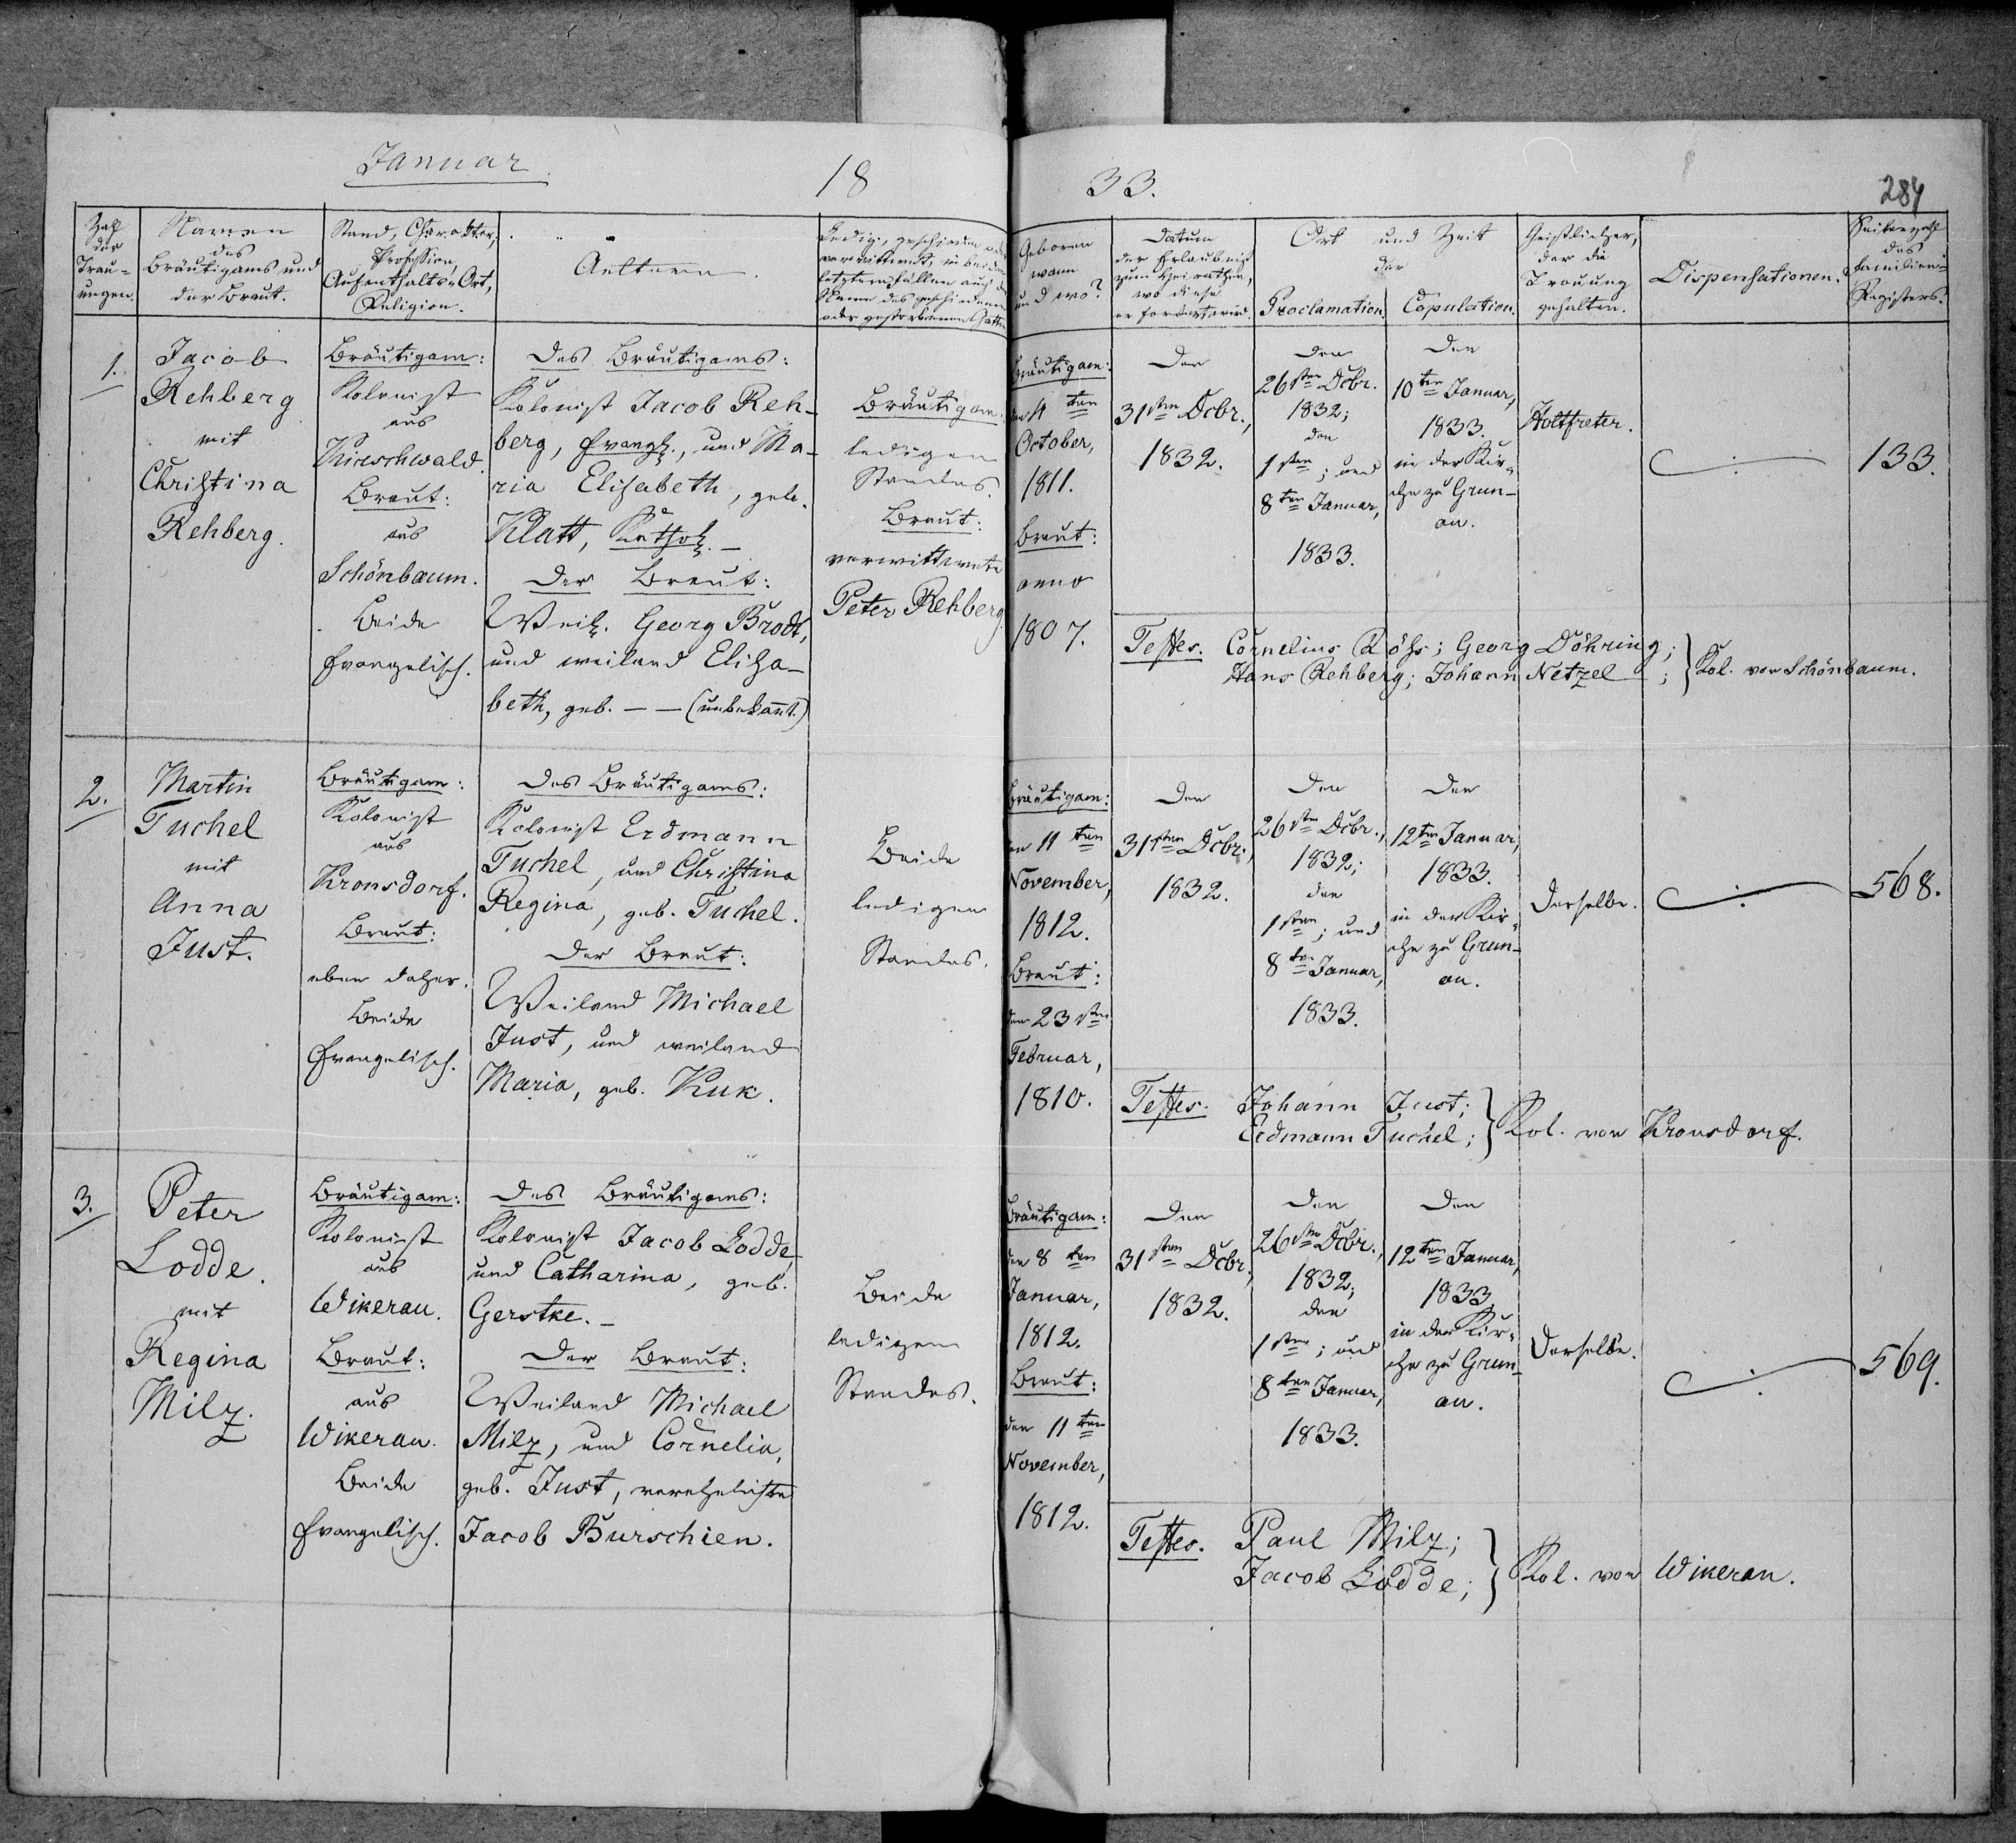 Januar.
18
33.
284
Zahl
der
Trau-
ungen.
Namen
des
Bräutigams und
der Braut.
Stand, Charakter,
Profession,
Aufenthalts-Ort,
Religion.
Aeltern.
Ledig, geschieden oder
verwittwet, in beiden
letztern Fällen auch der
Name des geschiedenen
oder gestorbenen Gatten
Geboren
wann
und wo?
Datum
der Erlaubniß
zum Heirathen,
wo diese
erfordert wird.
Ort und Zeit
der
Proclamation. Copulation.
Geistlicher,
der die
Trauung
gehalten.
Dispensationen.
Seitenzahl
des
Familien-
Registers.
1.
Jacob
Rehberg
mit
Christina
Rehberg.
Bräutigam:
Kolonist
aus
Kirschwald.
Braut:
aus
Schönbaum.
Beide
Evangelisch.
Des Bräutigams:
Kolonist Jacob Reh-
berg, Evangl., und Ma-
ria Elisabeth, geb.
Klatt, Kathol. –
Der Braut:
Weil. Georg Brodt,
und weiland Elisa-
beth, geb. – – (unbekant.)
Bräutigam:
ledigen
Standes.
Braut:
verwittwete
Peter Rehberg.
Bräutigam:
den 4ten
October,
1811.
Braut:
anno
1807.
Den
31sten Dcbr.,
1832.
Den
26sten Dcbr.
1832;
den
1sten; und
8ten Januar,
1833.
Den
10ten Januar,
1833.
in der Kir-
che zu Grun-
au.
Holtfreter.
133.
Testes. Cornelius Röhs; Georg Döhring;
Hans Rehberg; Johann Netzel; } Kol. von Schönbaum.
2.
Martin
Tuchel
mit
Anna
Just.
Bräutigam:
Kolonist
aus
Kronsdorf.
Braut:
eben daher.
Beide
Evangelisch.
Des Bräutigams:
Kolonist Erdmann
Tuchel, und Christina
Regina, geb. Tuchel.
Der Braut:
Weiland Michael
Just, und weiland
Maria, geb. Kuk.
Beide
ledigen
Standes.
Bräutigam:
den 11ten
November,
1812.
Braut:
den 23sten
Februar,
1810.
Den
31sten Dcbr.,
1832.
Den
26sten Dcbr.,
1832;
den
1sten; und
8ten Januar,
1833.
Den
12ten Januar,
1833.
in der Kir-
che zu Grun-
au.
Derselbe.
568.
Testes. Johann Just;
Erdmann Tuchel; } Kol. von Kronsdorf.
3.
Peter
Lodde.
mit
Regina
Milz.
Bräutigam:
Kolonist
aus
Wikerau.
Braut:
aus
Wikerau.
Beide
Evangelisch.
Des Bräutigams:
Kolonist Jacob Lodde,
und Catharina, geb.
Gerstke. –
Der Braut:
Weiland Michael
Milz, und Cornelia,
geb. Just, verehelichte
Jacob Burschien.
Beide
ledigen
Standes.
Bräutigam:
den 8ten
Januar,
1812.
Braut:
den 11ten
November,
1812.
Den
31sten Dcbr.,
1832.
Den
26sten Dcbr.,
1832;
den
1sten; und
8ten Januar,
1833.
Den
12ten Januar,
1833
in der Kir-
che zu Grun-
au.
Derselbe.
569.
Testes. Paul Milz;
Jacob Lodde; } Kol. von Wikerau.